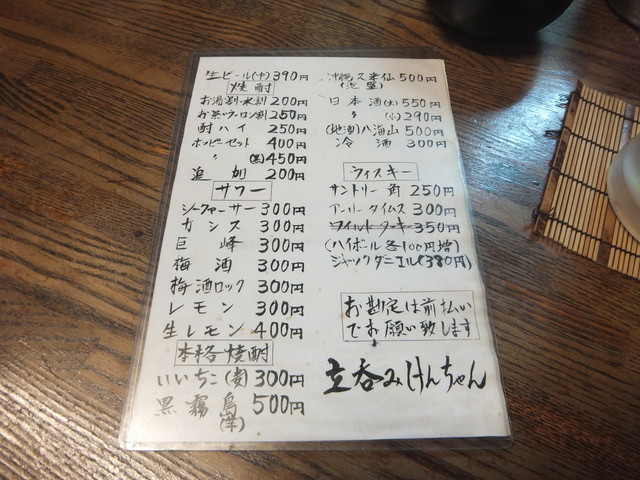 生ビール(中) 390円
焼酎
お湯割・水割 200円
お茶・ウーロン割 250円
酎ハイ 250円
ホッピーセット 400円
〃 (黒) 450円
追加 200円
サワー
シークヮーサー 300円
カシス 300円
巨峰 300円
梅酒 300円
梅酒ロック 300円
レモン 300円
生レモン 400円
本格焼酎
いいちこ(麦) 300円
黒霧島 500円
(芋)
沖縄久米仙 500円
(泡盛)
日本酒(大) 550円
〃 (小) 290円
(地酒)八海山 500円
冷酒 300円
ウィスキー
サントリー角 250円
アーリータイムス 300円
ワイルドターキー 350円
(ハイボール各100円増)
ジャックダニエル(380円)
お勘定は前払い
でお願い致します
立呑みけんちゃん